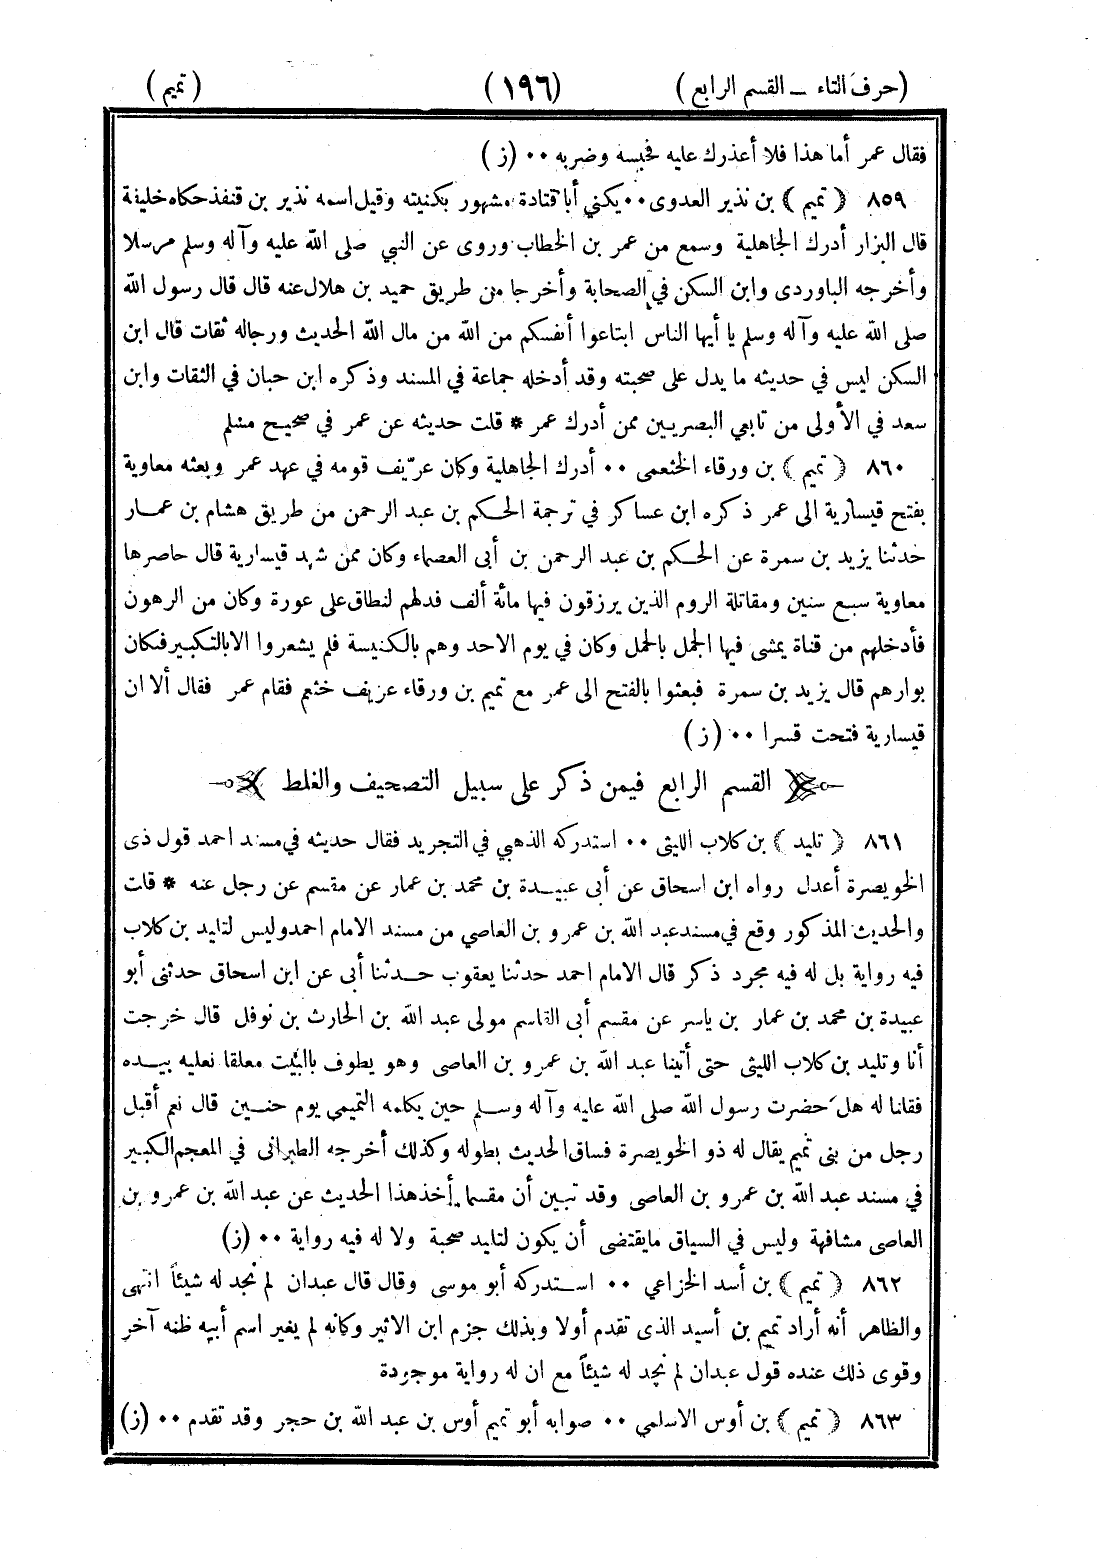 (حرف التاء ــ القسم الرابع) (١٩٦) (تميم)
فقال عمر أما هذا فلا أعذرك عليه فحبسه وضربه ٠٠ (ز)
٨٥٩ (تميم) بن نذير العدوى ٠٠ يكنى أبا قتادة مشهور بكنيته وقيل اسمه نذير بن قنفذ حكاه خليفة
قال البزار أدرك الجاهلية وسمع من عمر بن الخطاب وروى عن النبي صلى الله عليه وآله وسلم مرسلا
وأخرجه الباوردى وابن السكن في الصحابة وأخرجا من طريق حميد بن هلال عنه قال قال رسول الله
صلى الله عليه وآله وسلم يا أيها الناس ابتاعوا أنفسكم من الله من مال الله الحديث ورجاله ثقات قال ابن
السكن ليس في حديثه ما يدل على صحبته وقد أدخله جماعة في المسند وذكره ابن حبان في الثقات وابن
سعد في الأولى من تابعي البصريين ممن أدرك عمر * قلت حديثه عن عمر في صحيح مسلم
٨٦٠ (تميم) بن ورقاء الخثعمى ٠٠ أدرك الجاهلية وكان عرّيف قومه في عهد عمر وبعثه معاوية
بفتح قيسارية الى عمر ذكره ابن عساكر في ترجمة الحكم بن عبد الرحمن من طريق هشام بن عمار
حدثنا يزيد بن سمرة عن الحكم بن عبد الرحمن بن أبى العصماء وكان ممن شهد قيسارية قال حاصرها
معاوية سبع سنين ومقاتلة الروم الذين يرزقون فيها مائة ألف فدلهم لنطاق على عورة وكان من الرهون
فأدخلهم من قناة يمشى فيها الجمل بالحمل وكان في يوم الاحد وهم بالكنيسة فلم يشعروا الا بالتكبير فكان
بوارهم قال يزيد بن سمرة فبعثوا بالفتح الى عمر مع تميم بن ورقاء عريف خثعم فقام عمر فقال ألا ان
قيسارية فتحت قسرا ٠٠ (ز)
القسم الرابع فيمن ذكر على سبيل التصحيف والغلط
٨٦١ (تليد) بن كلاب الليثى ٠٠ استدركه الذهبي في التجريد فقال حديثه في مسند احمد قول ذى
الخويصرة أعدل رواه ابن اسحاق عن أبى عبيدة بن محمد بن عمار عن مقسم عن رجل عنه * قلت
والحديث المذكور وقع في مسند عبد الله بن عمرو بن العاصي من مسند الامام احمد وليس لتليد بن كلاب
فيه رواية بل له فيه مجرد ذكر قال الامام احمد حدثنا يعقوب حدثنا أبى عن ابن اسحاق حدثنى أبو
عبيدة بن محمد بن عمار بن ياسر عن مقسم أبى القاسم مولى عبد الله بن الحارث بن نوفل قال خرجت
أنا وتليد بن كلاب الليثى حتى أتينا عبد الله بن عمرو بن العاصى وهو يطوف بالبيت معلقا نعليه بيده
فقلنا له هل حضرت رسول الله صلى الله عليه وآله وسلم حين يكلمه التميمي يوم حنين قال نعم أقبل
رجل من بنى تميم يقال له ذو الخويصرة فساق الحديث بطوله وكذلك أخرجه الطبرانى في المعجم الكبير
في مسند عبد الله بن عمرو بن العاصى وقد تبين أن مقسما أخذ هذا الحديث عن عبد الله بن عمرو بن
العاصى مشافهة وليس في السياق مايقتضى أن يكون لتليد صحبة ولا له فيه رواية ٠٠ (ز)
٨٦٢ (تميم) بن أسد الخزاعي ٠٠ استدركه أبو موسى وقال قال عبدان لم نجد له شيئاً انتهى
والظاهر أنه أراد تميم بن أسيد الذى تقدم أولا وبذلك جزم ابن الاثير وكانه لم يغير اسم أبيه ظنه آخر
وقوى ذلك عنده قول عبدان لم نجد له شيئاً مع ان له رواية موجودة
٨٦٣ (تميم) بن أوس الاسلمي ٠٠ صوابه أبو تميم أوس بن عبد الله بن حجر وقد تقدم ٠٠ (ز)